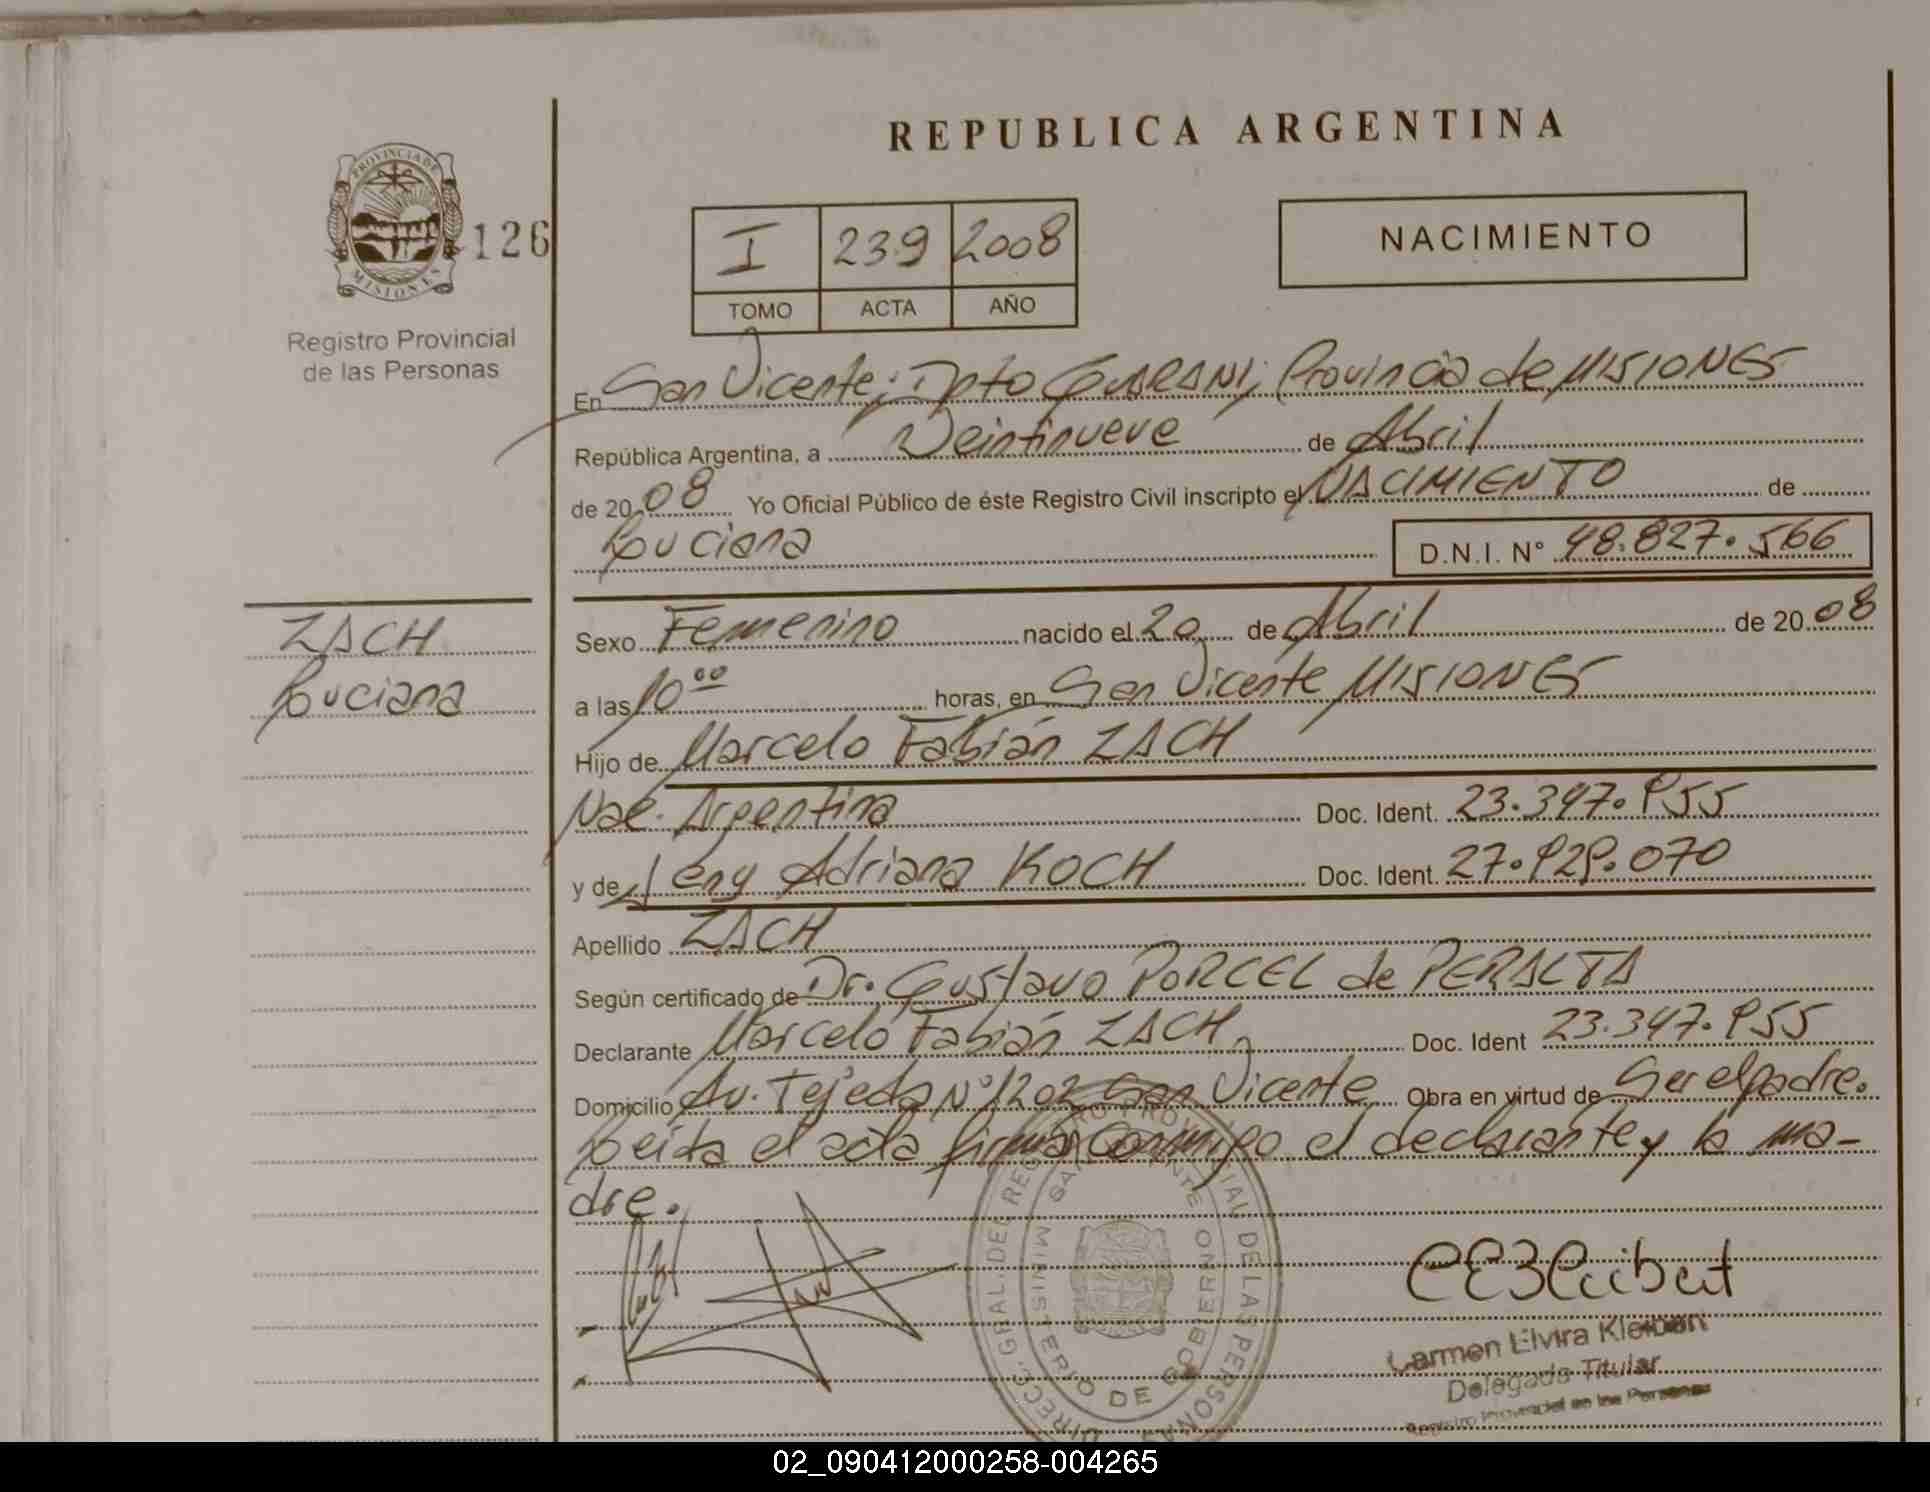 REPUBLICA ARGENTINA
PROVINCIA DE
MISIONES
126
Registro Provincial
de las Personas
I 239 2008
TOMO ACTA AÑO
NACIMIENTO
En San Vicente; Dpto GUARANI; Provincia de MISIONES
República Argentina, a Veintinueve de Abril
de 2008 Yo Oficial Público de éste Registro Civil inscripto el NACIMIENTO de
Luciana D.N.I. N° 48.827.566
ZACH
Luciana
Sexo Femenino nacido el 20 de Abril de 2008
a las 10 00 horas, en San Vicente MISIONES
Hijo de Marcelo Fabián ZACH
Nac. Argentina Doc. Ident. 23.347.955
y de Jeny Adriana KOCH Doc. Ident. 27.929.070
Apellido ZACH
Según certificado de Dr. Gustavo PORCEL de PERALTA
Declarante Marcelo Fabián ZACH Doc. Ident 23.347.955
Domicilio Av. Tejeda N° 1202 San Vicente Obra en virtud de Ser el padre.
Leída el acta firman conmigo el declarante y la ma-
dre.
MINISTERIO DE GOBIERNO
Carmen Elvira Kleibert
Delegada Titular
Registro Provincial de las Personas
02_090412000258-004265